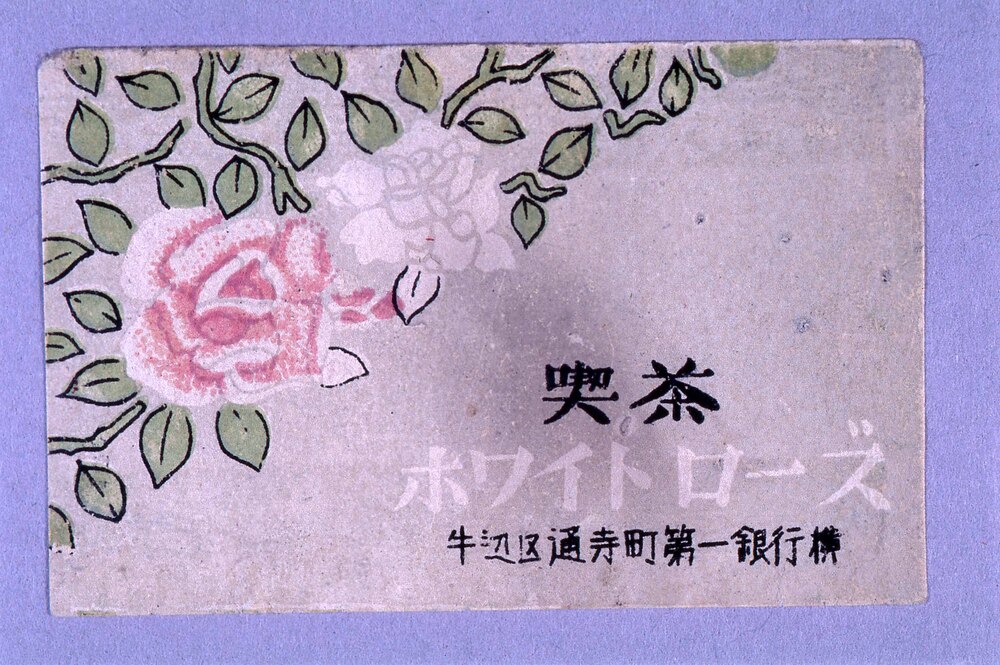 喫茶
ホワイトローズ
牛辺区通寺町第一銀行横